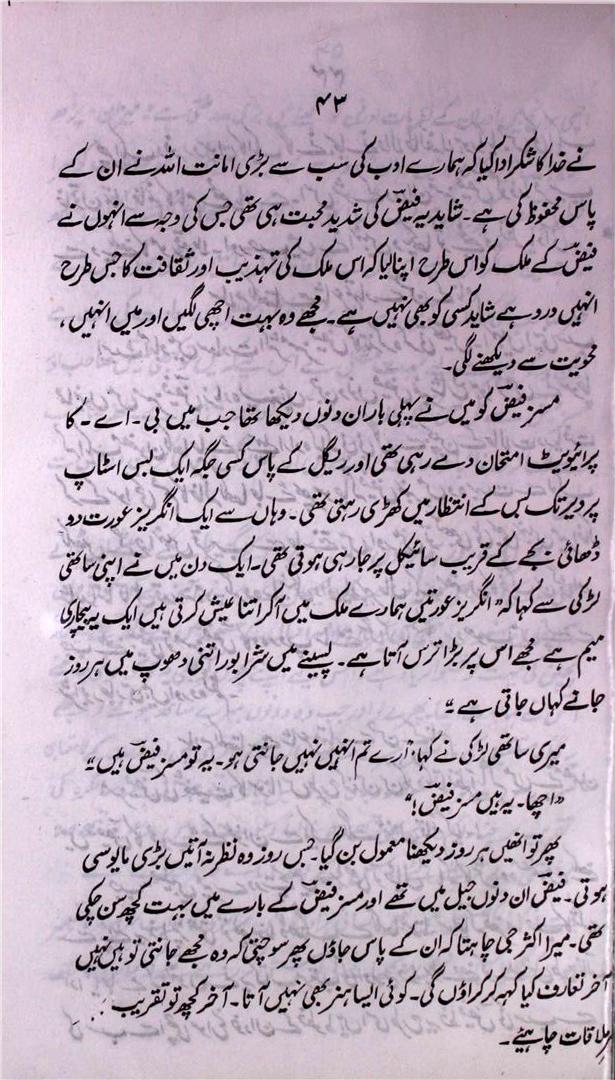 ۴۳
نے خدا کا شکر ادا کیا کہ ہمارے ادب کی سب سے بڑی امانت اللہ نے ان کے
پاس محفوظ کی ہے۔ شاید یہ فیضؔ کی شدید محبت ہی تھی جس کی وجہ سے انہوں نے
فیضؔ کے ملک کو اس طرح اپنا لیا کہ اس ملک کی تہذیب اور ثقافت کا جس طرح
انہیں درد ہے شاید کسی کو بھی نہیں ہے۔ مجھے وہ بہت اچھی لگیں اور میں انہیں،
محویت سے دیکھنے لگی۔
مسز فیضؔ کو میں نے پہلی بار ان دنوں دیکھا تھا جب میں بی۔ اے۔ کا
پرائیویٹ امتحان دے رہی تھی اور ریگل کے پاس کسی جگہ ایک بس اسٹاپ
پر دیر تک بس کے انتظار میں کھڑی رہتی تھی۔ وہاں سے ایک انگریز عورت دو
ڈھائی بجے کے قریب سائیکل پر جا رہی ہوتی تھی۔ ایک دن میں نے اپنی ساتھی
لڑکی سے کہا کہ "انگریز عورتیں ہمارے ملک میں آکر اتنا عیش کرتی ہیں ایک یہ بیچاری
میم ہے مجھے اس پر بڑا ترس آتا ہے۔ پسینے میں شرابور اتنی دھوپ میں ہر روز
جانے کہاں جاتی ہے"
میری ساتھی لڑکی نے کہا "ارے تم انہیں نہیں جانتی ہو۔ یہ تو مسز فیضؔ ہیں"
"اچھا۔ یہ ہیں مسز فیضؔ!"
پھر تو انھیں ہر روز دیکھنا معمول بن گیا۔ جس روز وہ نظر نہ آتیں بڑی مایوسی
ہوتی۔ فیضؔ ان دنوں جیل میں تھے اور مسز فیضؔ کے بارے میں بہت کچھ سن چکی
تھی۔ میرا اکثر جی چاہتا کہ ان کے پاس جاؤں پھر سوچتی کہ وہ مجھے جانتی تو ہیں نہیں
آخر تعارف کیا کہہ کر کراؤں گی۔ کوئی ایسا ہنر بھی نہیں آتا۔ آخر کچھ تو تقریب
ملاقات چاہیئے۔